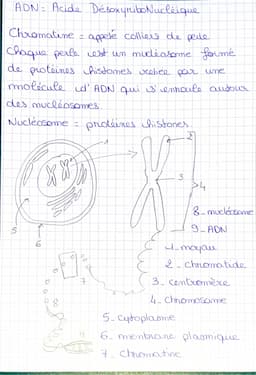 ADN = Acide DésoxyriboNucléique
Chromatine = appelé colliers de perle
Chaque perle est un nucléosome formé
de protéines histones reliée par une
molécule d'ADN qui s'enroule autour
des nucléosomes.
Nucléosome = protéines histones
1
2
3
4
5
6
7
8_ nucléosome
9_ ADN
1_ noyau
2_ chromatide
3_ centromère
4_ chromosome
5_ cytoplasme
6_ membrane plasmique
7_ Chromatine